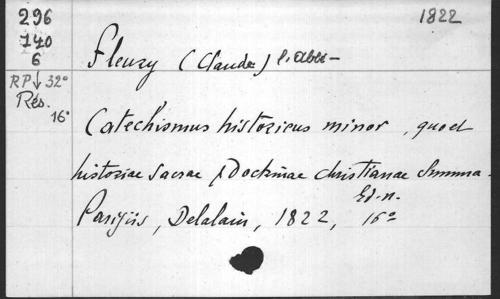 296
140
6
RP ↓ 32°
Rés.
16°
1822
Fleury (Claude) l'Abbé-
Catechismus historicus minor, quod
historiae sacrae & Doctrinae christianae summa.
Ed. n.
Parisiis, Delalain, 1822, 16°